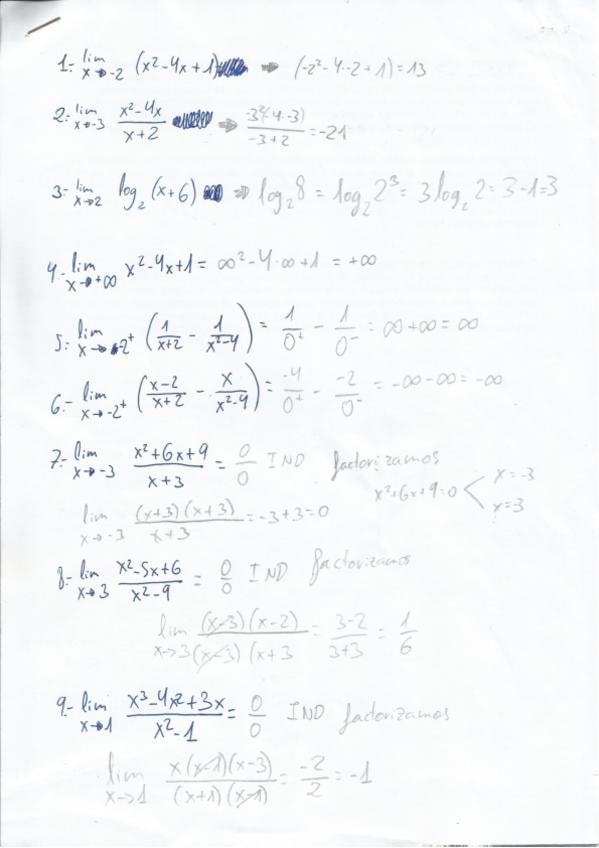 1.- lim x→-2 (x²-4x+1) ⇒ (-2²-4·-2+1)=13
2.- lim x→-3 (x²-4x)/(x+2) ⇒ (-3²-(4·-3))/(-3+2) = -21
3.- lim x→2 log₂(x+6) ⇒ log₂8 = log₂2³ = 3log₂2 = 3·1=3
4.- lim x→+∞ x²-4x+1 = ∞²-4·∞+1 = +∞
5.- lim x→-2⁺ (1/(x+2) - 1/(x²-4)) = 1/0⁺ - 1/0⁻ = ∞+∞ = ∞
6.- lim x→-2⁺ ((x-2)/(x+2) - x/(x²-4)) = -4/0⁺ - -2/0⁻ = -∞-∞ = -∞
7.- lim x→-3 (x²+6x+9)/(x+3) = 0/0 IND factorizamos
x²+6x+9=0 < x=-3 x=3
lim x→-3 (x+3)(x+3)/(x+3) = -3+3=0
8.- lim x→3 (x²-5x+6)/(x²-9) = 0/0 IND factorizamos
lim x→3 (x-3)(x-2)/(x-3)(x+3 = (3-2)/(3+3) = 1/6
9.- lim x→1 (x³-4x²+3x)/(x²-1) = 0/0 IND factorizamos
lim x→1 x(x-1)(x-3)/(x+1)(x-1) = -2/2 = -1